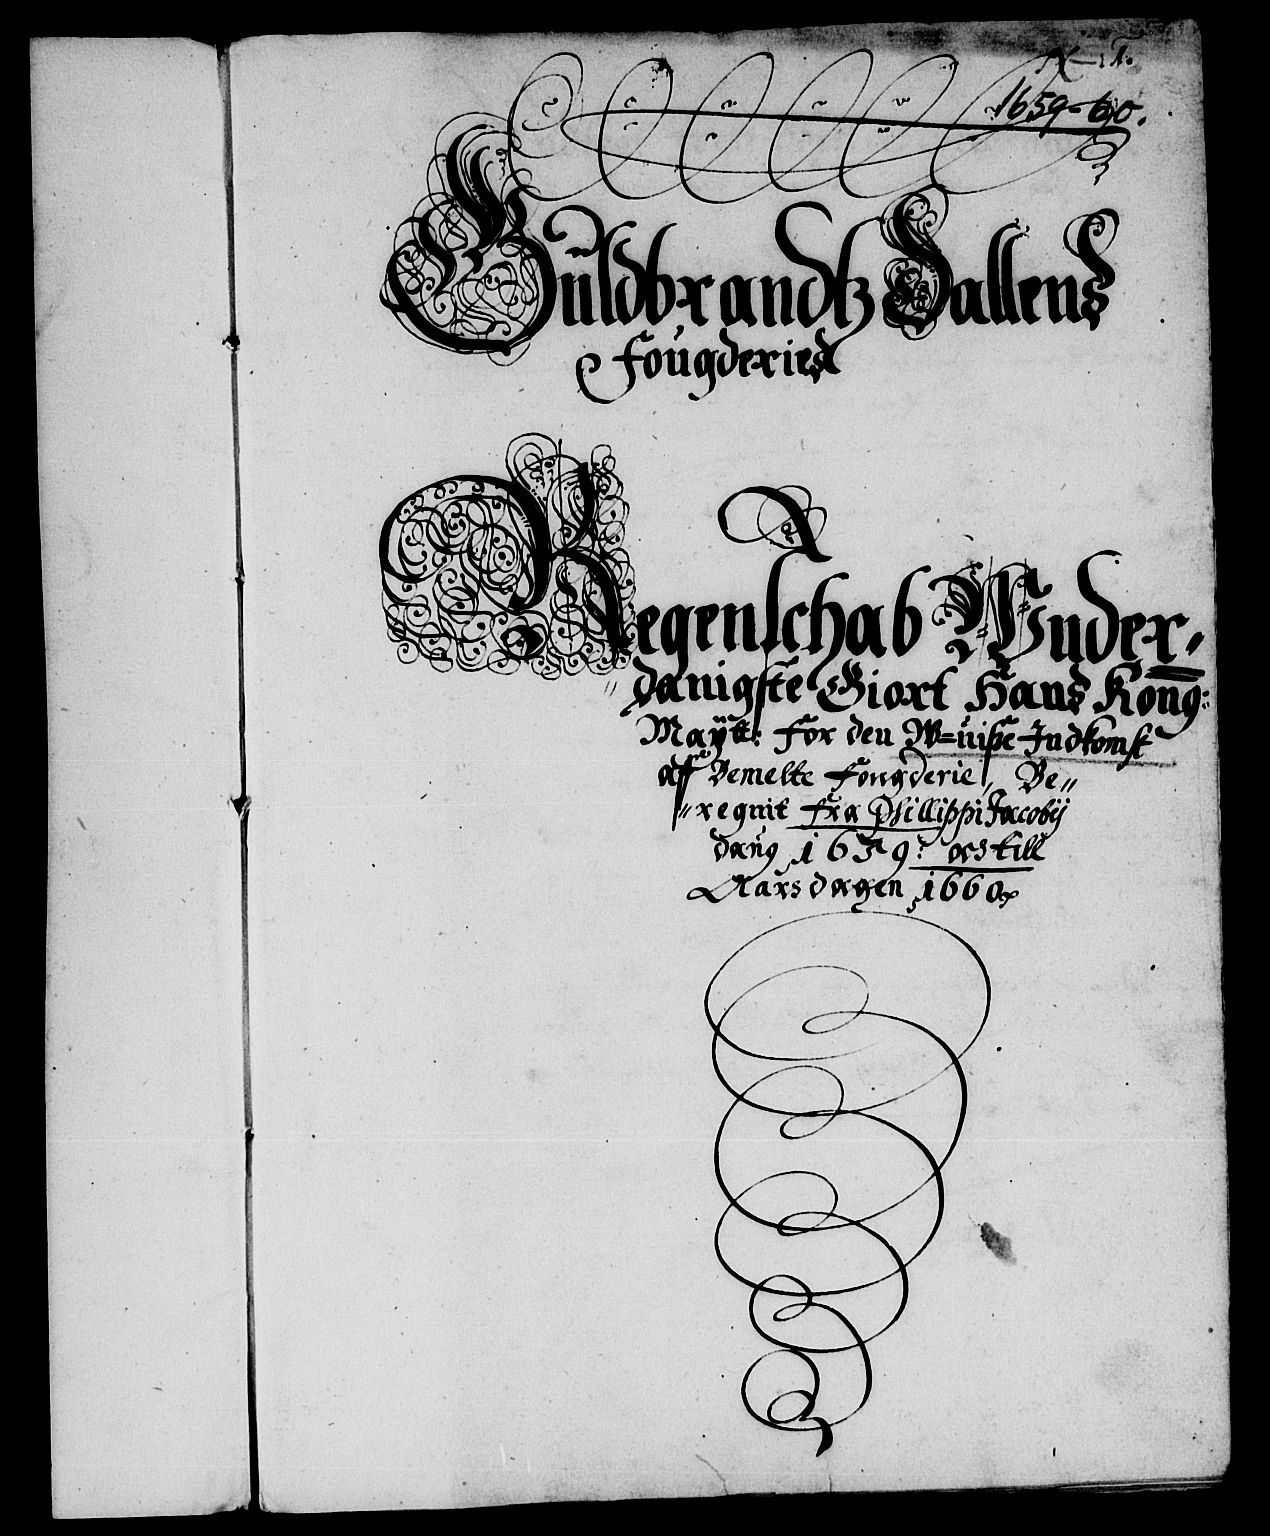 1659-60.
Gůldbrandtz Dallens
Foůgderies
Regenschab Wnder,
danigste Giort Hans Kong:
Maÿtt: for den W=ůiße Indkomst
aff Bemelte Fougderie, Be,,
,,regnit fra Phillippi Jacobij
daůg 1659: och till
Aarsdagen 1660